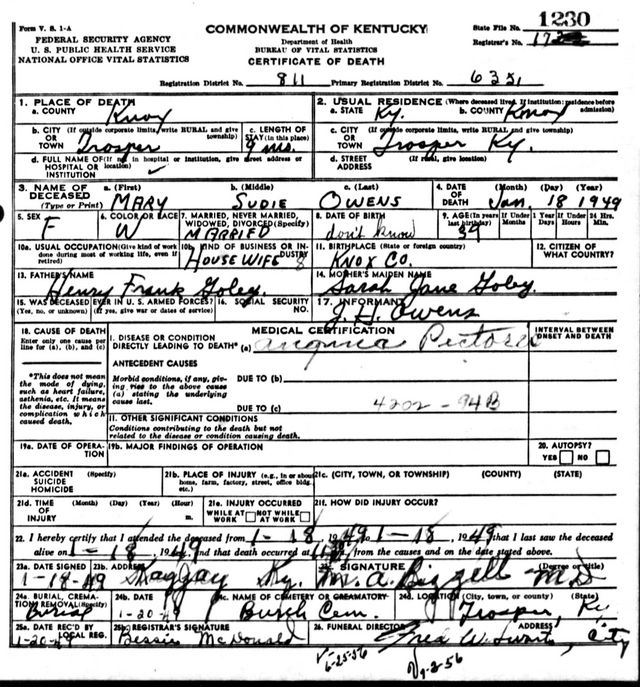 Form V. S. 1-A
FEDERAL SECURITY AGENCY
U. S. PUBLIC HEALTH SERVICE
NATIONAL OFFICE VITAL STATISTICS
COMMONWEALTH OF KENTUCKY
Department of Health
BUREAU OF VITAL STATISTICS
CERTIFICATE OF DEATH
State File No. 1230
Registrar's No.
Registration District No. 811 Primary Registration District No. 6351
1. PLACE OF DEATH
a. COUNTY Knox
2. USUAL RESIDENCE (Where deceased lived. If institution: residence before admission)
a. STATE Ky. b. COUNTY Knox
b. CITY (If outside corporate limits, write RURAL and give township) OR TOWN Trosper
c. LENGTH OF STAY (in this place) 9 mo.
c. CITY (If outside corporate limits, write RURAL and give township) OR TOWN Trosper Ky.
d. FULL NAME OF (If not in hospital or institution, give street address or location) HOSPITAL OR INSTITUTION
d. STREET ADDRESS (If rural, give location)
3. NAME OF DECEASED (Type or Print)
a. (First) MARY b. (Middle) SUDIE c. (Last) OWENS
4. DATE OF DEATH (Month) (Day) (Year) Jan. 18 1949
5. SEX F
6. COLOR OR RACE W
7. MARRIED, NEVER MARRIED, WIDOWED, DIVORCED (Specify) MARRIED
8. DATE OF BIRTH don't know
9. AGE (In years last birthday) 39
If Under 1 Year Months Days If Under 24 Hrs. Hours Min.
10a. USUAL OCCUPATION (Give kind of work done during most of working life, even if retired)
10b. KIND OF BUSINESS OR INDUSTRY
HOUSEWIFE
11. BIRTHPLACE (State or foreign country) KNOX CO.
12. CITIZEN OF WHAT COUNTRY?
13. FATHER'S NAME
Henry Frank Goley.
14. MOTHER'S MAIDEN NAME
Sarah Jane Goley.
15. WAS DECEASED EVER IN U. S. ARMED FORCES? (Yes, no, or unknown) (If yes, give war or dates of service)
16. SOCIAL SECURITY NO.
17. INFORMANT
J. H. Owens
18. CAUSE OF DEATH
Enter only one cause per line for (a), (b), and (c)
*This does not mean the mode of dying, such as heart failure, asthenia, etc. It means the disease, injury, or complication which caused death.
MEDICAL CERTIFICATION
I. DISEASE OR CONDITION DIRECTLY LEADING TO DEATH* (a) angina Pectoris
INTERVAL BETWEEN ONSET AND DEATH
ANTECEDENT CAUSES
Morbid conditions, if any, giving rise to the above cause (a) stating the underlying cause last.
DUE TO (b)
DUE TO (c) 4202 - 94B
II. OTHER SIGNIFICANT CONDITIONS
Conditions contributing to the death but not related to the disease or condition causing death.
19a. DATE OF OPERATION
19b. MAJOR FINDINGS OF OPERATION
20. AUTOPSY?
YES NO
21a. ACCIDENT SUICIDE HOMICIDE (Specify)
21b. PLACE OF INJURY (e.g., in or about home, farm, factory, street, office bldg. etc.)
21c. (CITY, TOWN, OR TOWNSHIP) (COUNTY) (STATE)
21d. TIME OF INJURY (Month) (Day) (Year) (Hour) m.
21e. INJURY OCCURRED WHILE AT WORK NOT WHILE AT WORK
21f. HOW DID INJURY OCCUR?
22. I hereby certify that I attended the deceased from 1-18, 1949, to 1-18, 1949 that I last saw the deceased
alive on 1-18, 1949, and that death occurred at m., from the causes and on the date stated above.
23a. DATE SIGNED 1-18-49
23b. ADDRESS Ky.
23c. SIGNATURE (Degree or title) M. A. Bizzell M.D
24a. BURIAL, CREMATION, REMOVAL (Specify) Burial
24b. DATE 1-20-49
24c. NAME OF CEMETERY OR CREMATORY Burch Cem.
24d. LOCATION (City, town, or county) (State) Trosper, Ky.
25a. DATE REC'D BY LOCAL REG. 1-20-49
25b. REGISTRAR'S SIGNATURE
Bessie McDonald
26. FUNERAL DIRECTOR ADDRESS
Fred W. Swartz, City
6-25-56